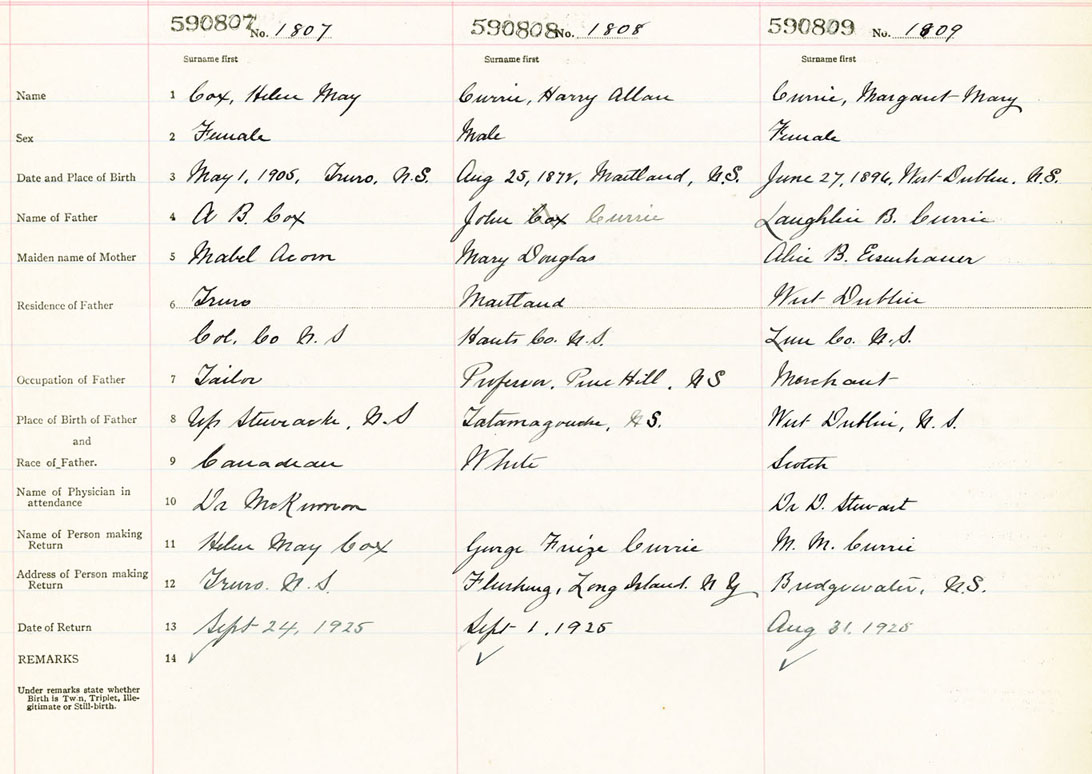 590807 No. 1807 590808 No. 1808 590809 No. 1809
Surname first Surname first Surname first
Name 1 Cox, Helen May Currie, Harry Allan Currie, Margaret Mary
Sex 2 Female Male Female
Date and Place of Birth 3 May 1, 1905, Truro, N.S. Aug 25, 1878, Maitland, N.S. June 27, 1896, West Dublin, N.S.
Name of Father 4 A B. Cox John Cox Currie Laughlin B. Currie
Maiden name of Mother 5 Mabel Acorn Mary Douglas Alice B. Eisenhauer
Residence of Father 6 Truro Maitland West Dublin
Col. Co N. S Hants Co. N.S. Lun Co. N.S.
Occupation of Father 7 Tailor Professor, Pine Hill, N S Merchant
Place of Birth of Father 8 Up Stewiacke, N.S Tatamagouche, N S. West Dublin, N. S.
and
Race of Father. 9 Canadian White Scotch
Name of Physician in
attendance 10 Dr McKinnon Dr D. Stewart
Name of Person making
Return 11 Helen May Cox George Currie M. M. Currie
Address of Person making
Return 12 Truro. N.S. Flushing, Long Island. N Y Bridgewater, N.S.
Date of Return 13 Sept 24, 1925 Sept 1, 1925 Aug 31, 1925
REMARKS 14 ✓ ✓ ✓
Under remarks state whether
Birth is Twin, Triplet, Ille-
gitimate or Still-birth.